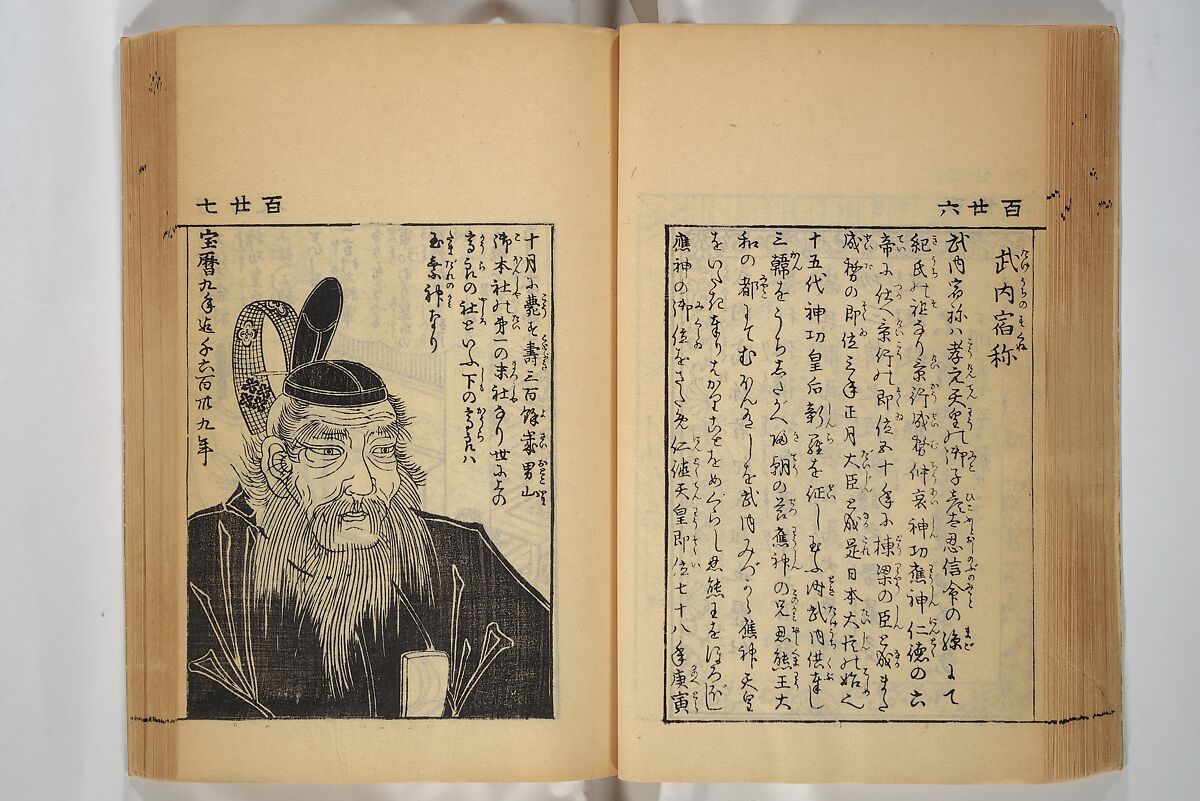 百廿六
武内宿祢
武内宿祢ハ孝元天皇の御子彦太忍信命の孫にて
紀氏の祖なり景行成務仲哀神功應神仁徳の六
帝に仕へ景行の即位五十年に棟梁の臣と成また
成務の即位三年正月大臣と成是日本大臣の始也
十五代神功皇后新羅を征し玉ふ時武内供奉し
三韓をうちしたがへ帰朝の後應神の兄忍熊王大
和の都にてむほん有しを武内みづから應神天皇
をいだき奉りはかりことをめぐらし忍熊王をほろぼし
應神の御位をさだめ仁徳天皇即位七十八年庚寅
百廿七
十月に薨ず壽三百餘歳男山
御本社の第一の末社なり世にこの
高良の社といふ下の高良ハ
玉垂神なり
宝暦九年迄千六百卅九年